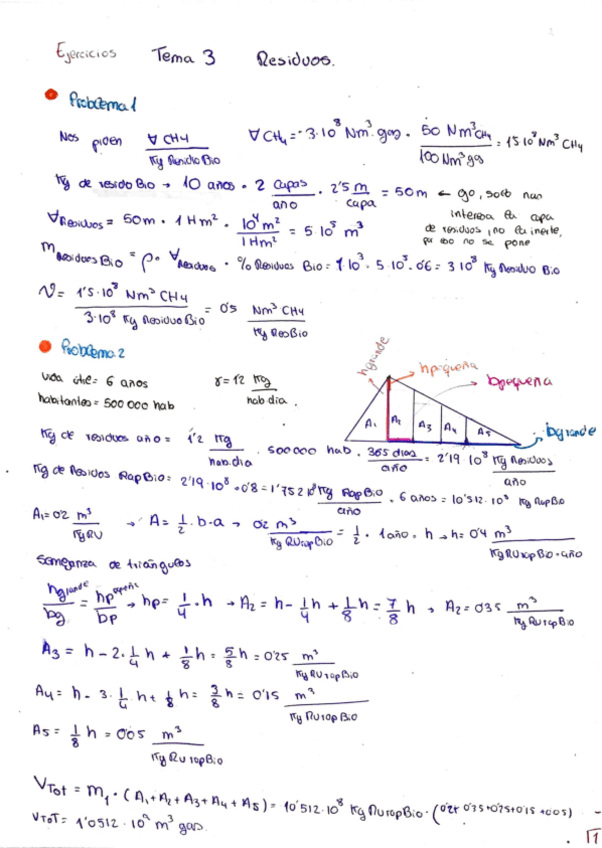 Ejercicios Tema 3 Residuos.
Problema 1
Nos piden ∀ CH4 / Kg Residuo Bio ∀ CH4 = 3·10⁸ Nm³ gas · 50 Nm³ CH4 / 100 Nm³ gas = 1'5·10⁸ Nm³ CH4
Kg de residuo Bio → 10 años · 2 capas/año · 2'5 m/capa = 50m ← go, solo nos
interesa la capa
∀Residuos = 50m · 1 Hm² · 10⁴ m² / 1 Hm² = 5·10⁵ m³
de residuos, no la inerte,
por eso no se pone
mResiduos Bio = ρ · ∀Residuos · % Residuos Bio = 1·10³ · 5·10⁵ · 0'6 = 3·10⁸ Kg Residuo Bio
N = 1'5·10⁸ Nm³ CH4 / 3·10⁸ Kg Residuo Bio = 0'5 Nm³ CH4 / Kg Res Bio
Problema 2
hgrande
hpequeña
bpequeña
vida útil = 6 años r = 1'2 Kg / hab dia.
habitantes = 500 000 hab
A1 A2 A3 A4 A5
bgrande
Kg de residuos año = 1'2 Kg / hab.dia · 500000 hab · 365 dias / año = 2'19·10⁸ Kg Residuos / año
Kg de Residuos Rap Bio = 2'19·10⁸ · 0'8 = 1'752·10⁸ Kg Rap Bio / año · 6 años = 10'512·10⁸ Kg Rap Bio
A1 = 0'2 m³ / Kg RU → A = 1/2 · b · a → 0'2 m³ / Kg RU rap Bio = 1/2 · 1 año · h → h = 0'4 m³ / Kg RU rap Bio · año
Semejanza de triángulos
hgrande / bg = hpequeña / bp → hp = 1/4 · h → A2 = h - 1/4 h + 1/8 h = 7/8 h → A2 = 0'35 m³ / Kg RU rap Bio
A3 = h - 2·1/4 h + 1/8 h = 5/8 h = 0'25 m³ / Kg RU rap Bio
A4 = h - 3·1/4 h + 1/8 h = 3/8 h = 0'15 m³ / Kg RU rap Bio
A5 = 1/8 h = 0'05 m³ / Kg RU rap Bio
VTot = m1 · (A1 + A2 + A3 + A4 + A5) = 10'512·10⁸ Kg RU rap Bio · (0'2+0'35+0'25+0'15+0'05)
VTOT = 1'0512·10⁹ m³ gas.